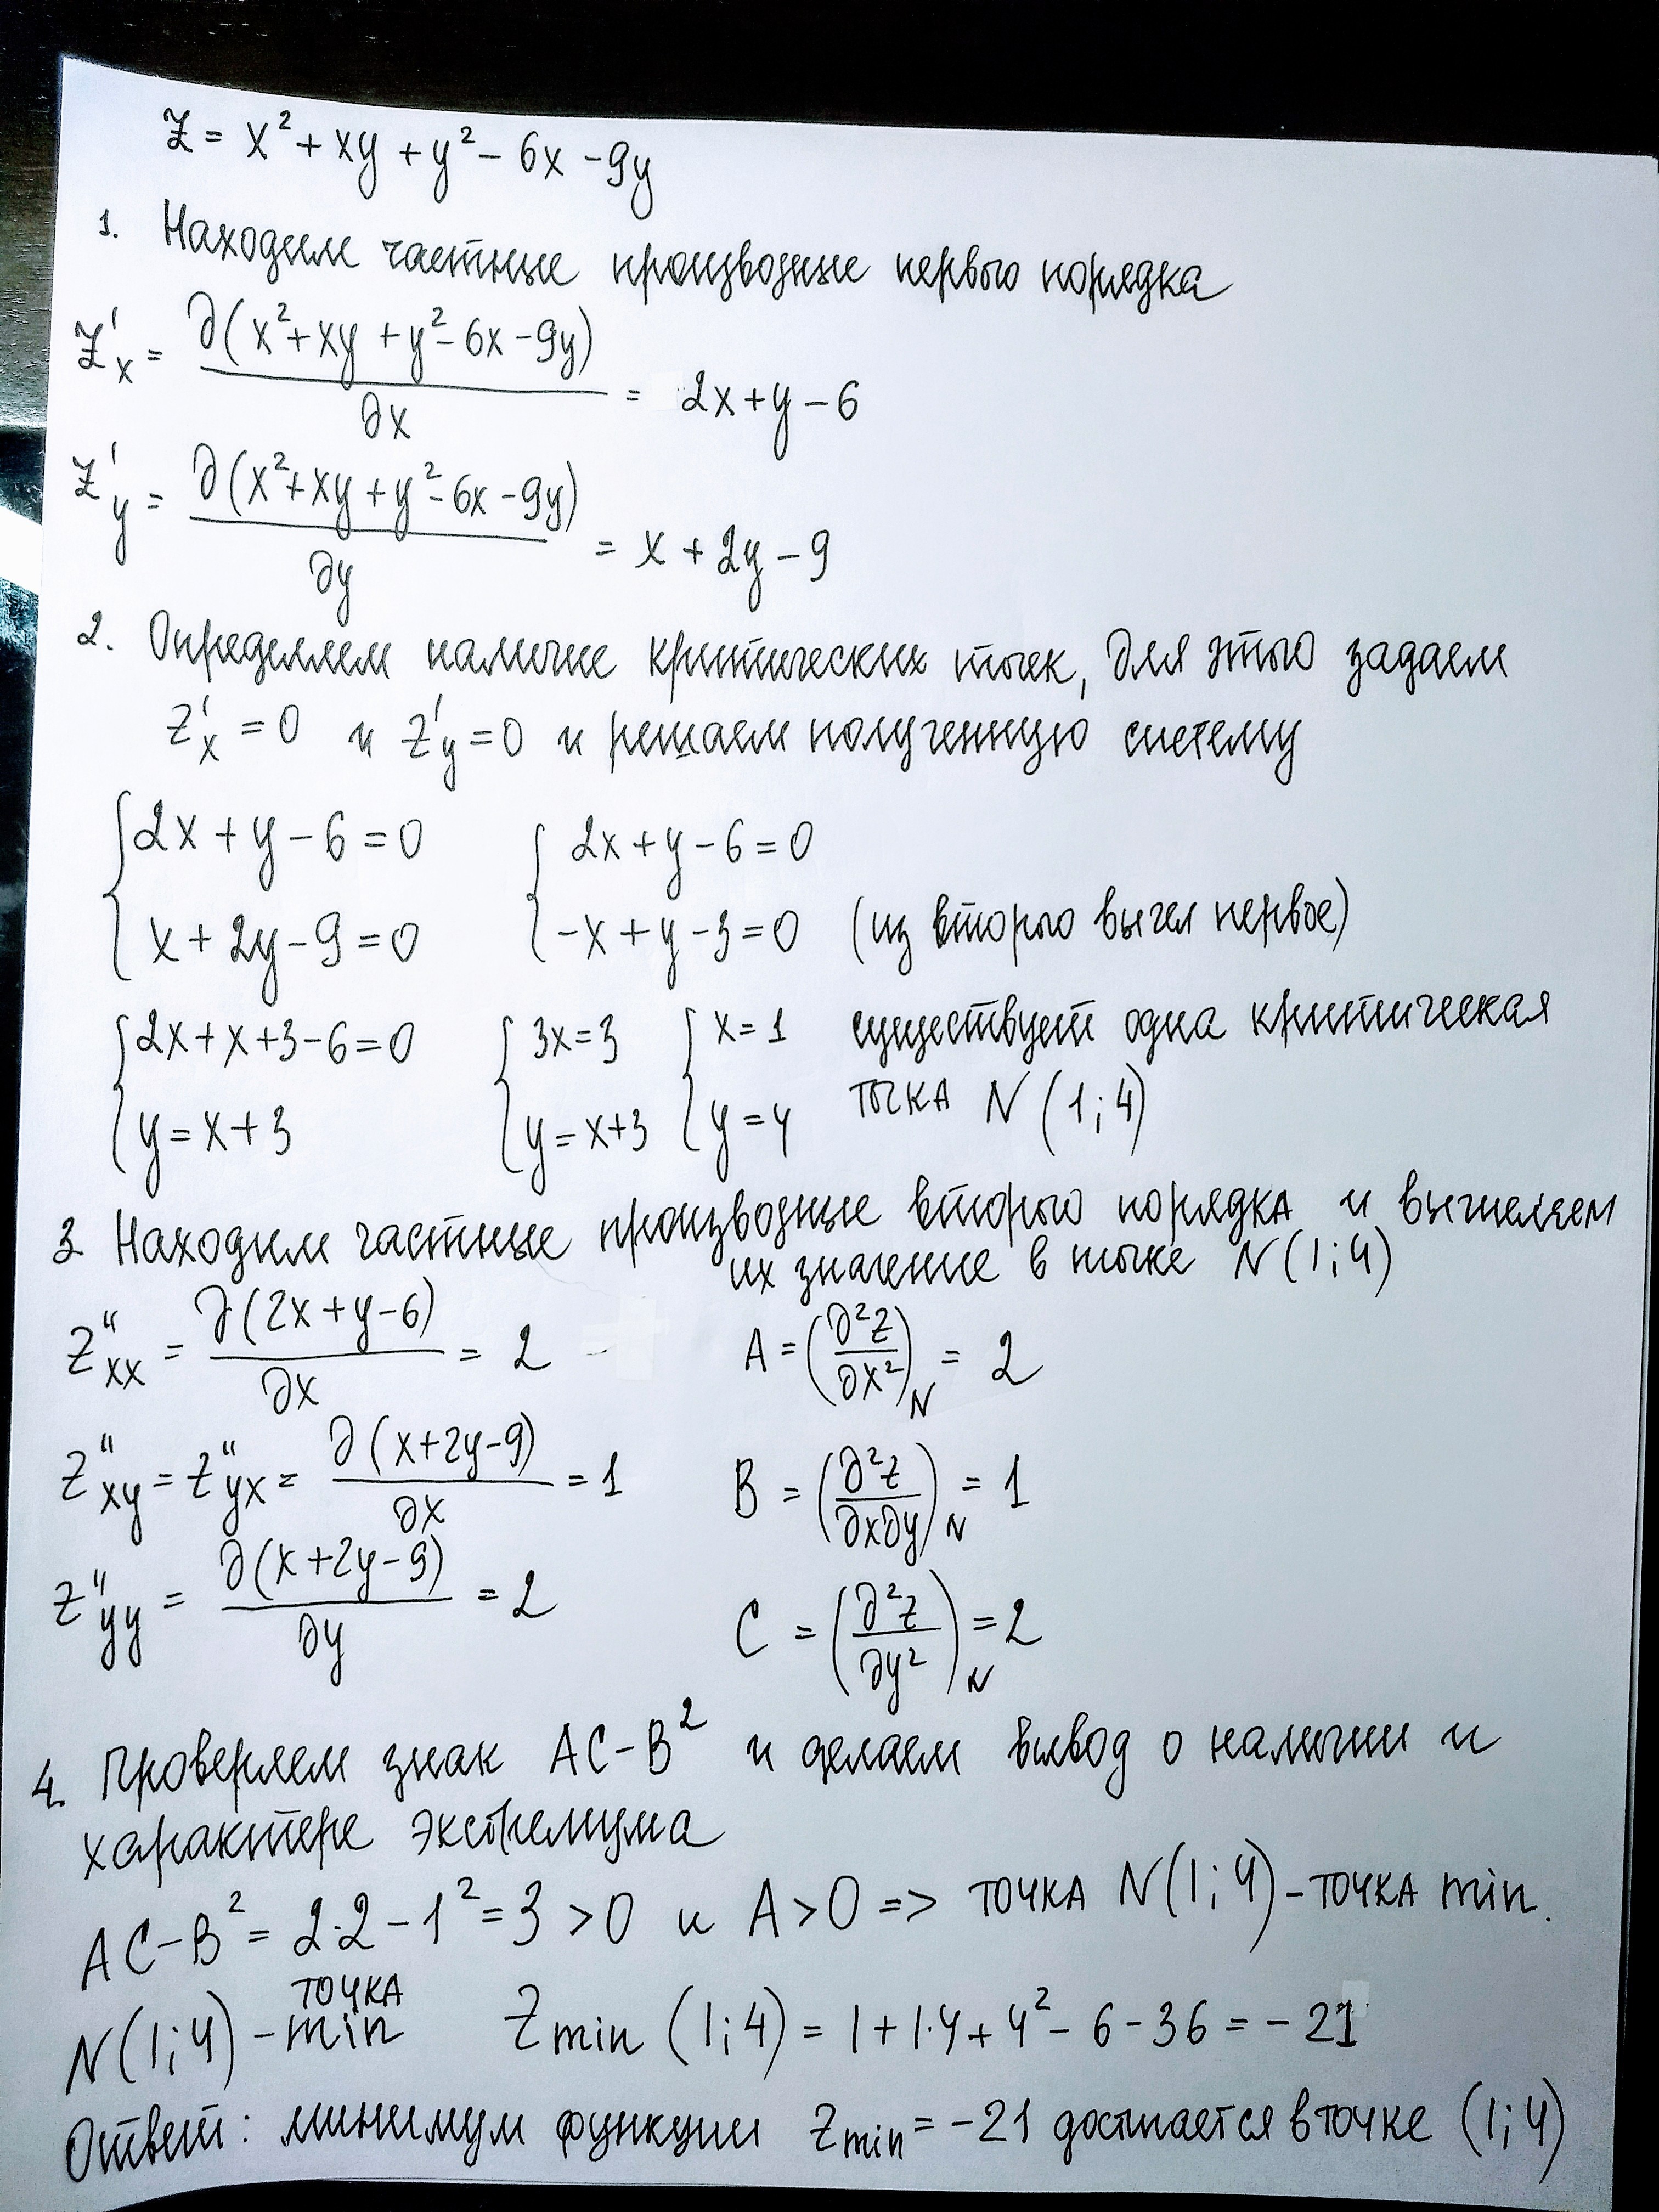 Z = x² + xy + y² - 6x - 9y
1. Находим частные производные первого порядка
Z'x = ∂(x² + xy + y² - 6x - 9y) / ∂x = 2x + y - 6
Z'y = ∂(x² + xy + y² - 6x - 9y) / ∂y = x + 2y - 9
2. Определяем наличие критических точек, для этого задаем
Z'x = 0 и Z'y = 0 и решаем полученную систему
{ 2x + y - 6 = 0 { 2x + y - 6 = 0
{ x + 2y - 9 = 0 { -x + y - 3 = 0 (из второго вычел первое)
{ 2x + x + 3 - 6 = 0 { 3x = 3 { x = 1 существует одна критическая
{ y = x + 3 { y = x + 3 { y = 4 точка N (1; 4)
3. Находим частные производные второго порядка и вычисляем
их значение в точке N(1; 4)
Z"xx = ∂(2x + y - 6) / ∂x = 2 A = (∂²Z / ∂x²)N = 2
Z"xy = Z"yx = ∂(x + 2y - 9) / ∂x = 1 B = (∂²Z / ∂x∂y)N = 1
Z"yy = ∂(x + 2y - 9) / ∂y = 2 C = (∂²Z / ∂y²)N = 2
4. Проверяем знак AC - B² и делаем вывод о наличии и
характере экстремума
AC - B² = 2·2 - 1² = 3 > 0 и A > 0 => точка N(1; 4) - точка min.
N(1; 4) - точка min Zmin (1; 4) = 1 + 1·4 + 4² - 6 - 36 = -21
Ответ: минимум функции Zmin = -21 достигается в точке (1; 4)